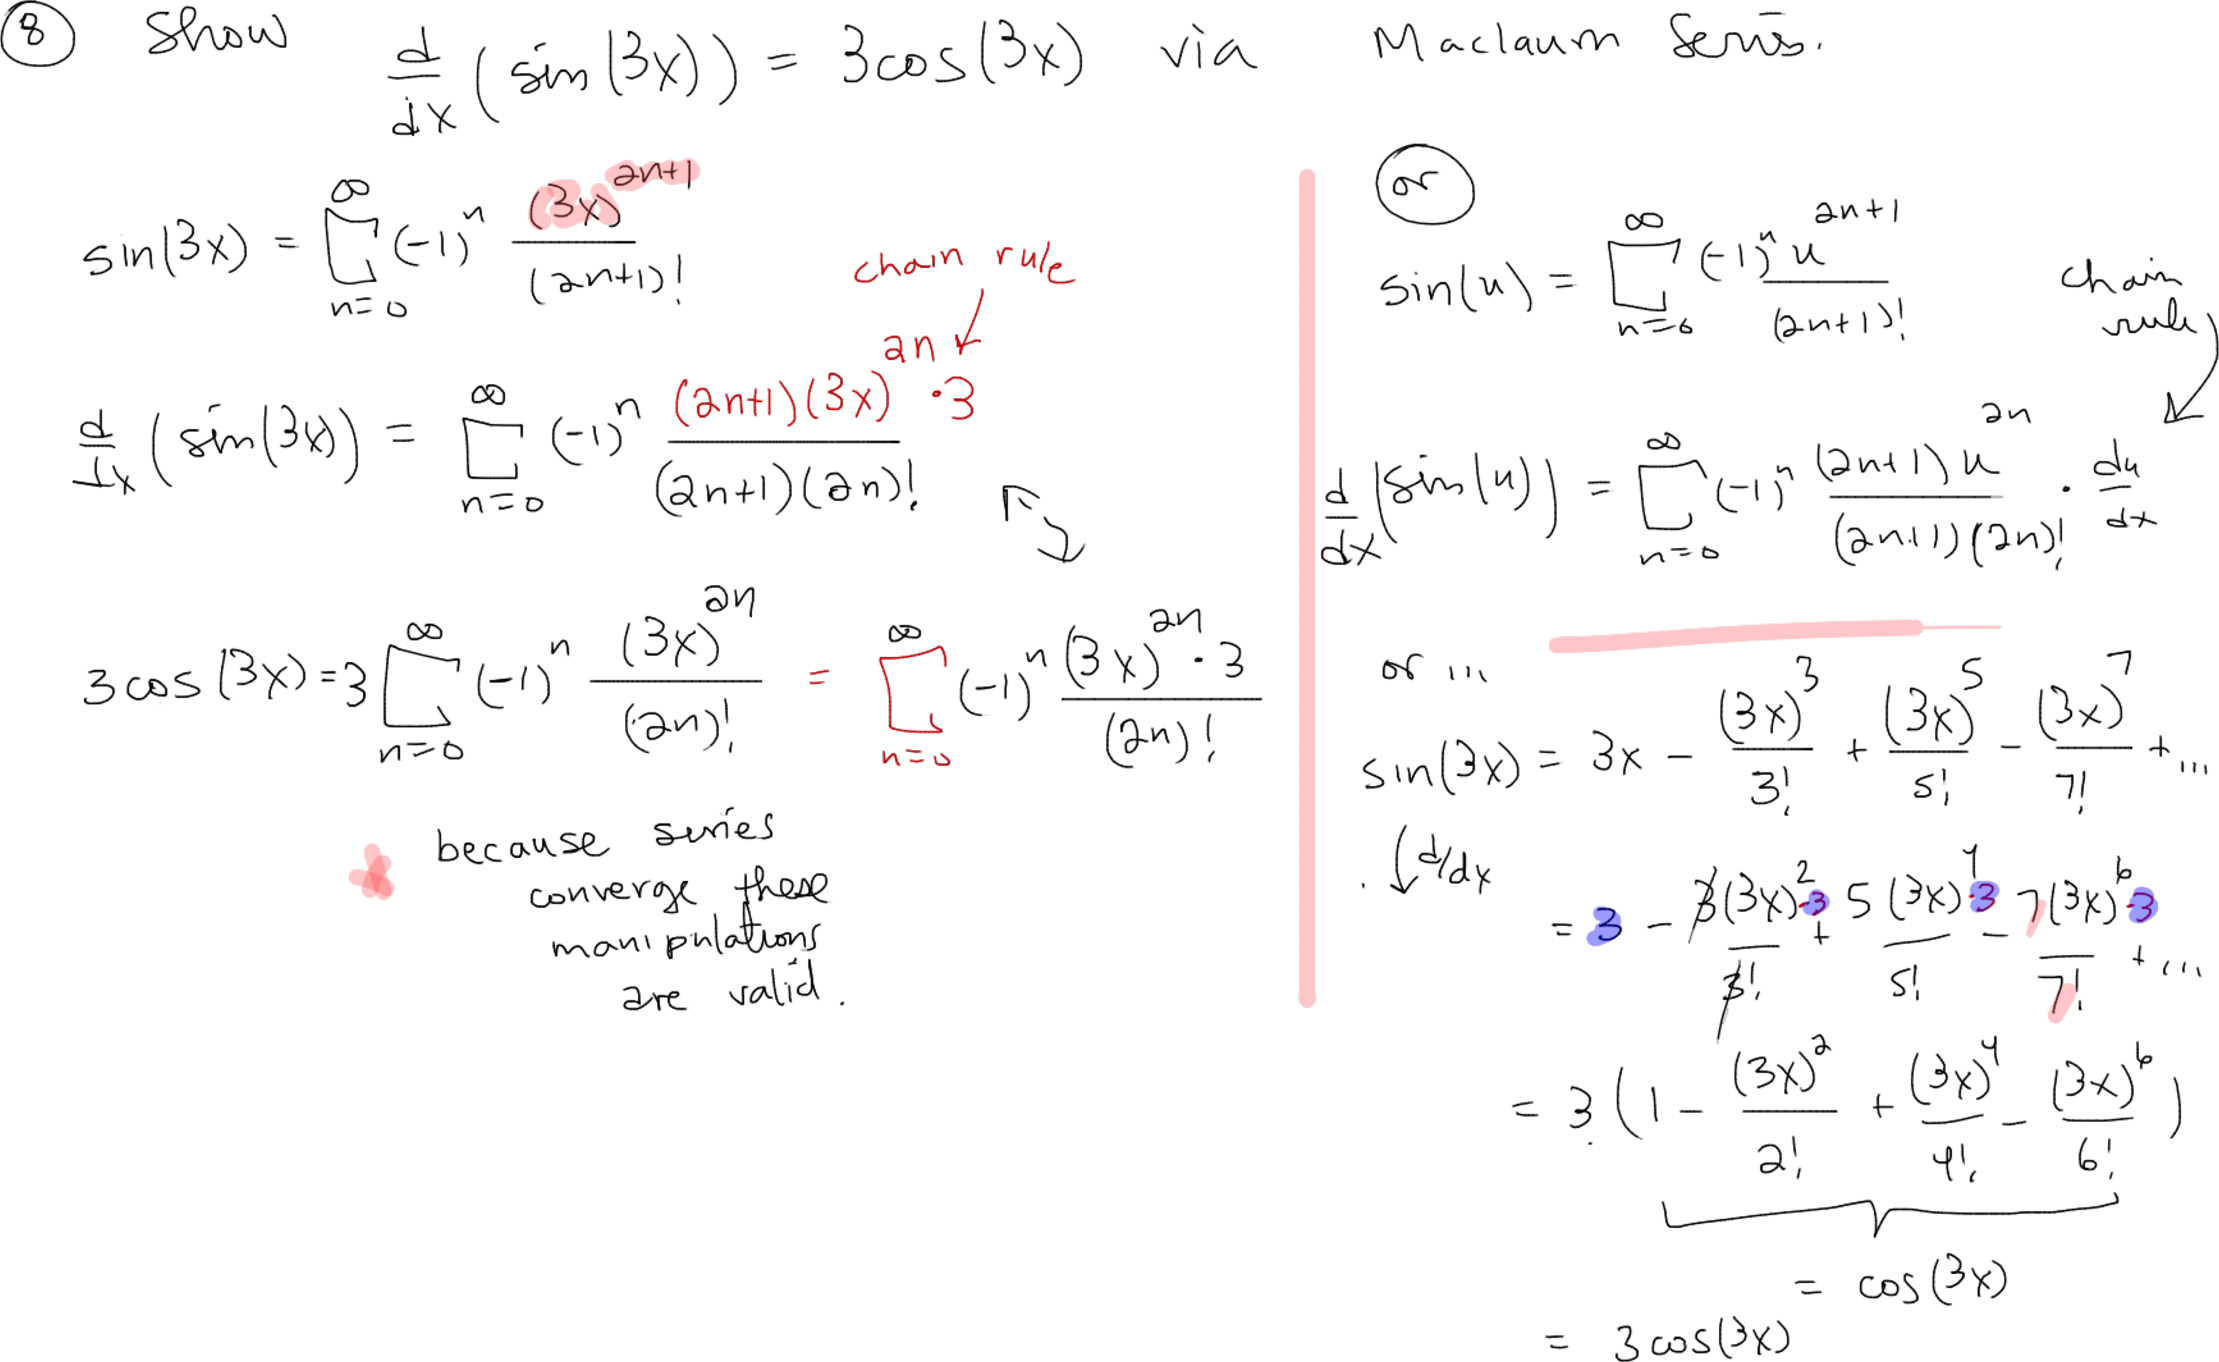 ⑧ Show d/dx (sin(3x)) = 3cos(3x) via Maclaurin Series.
sin(3x) = ∑_{n=0}^{∞} (-1)^n (3x)^{2n+1} / (2n+1)!
chain rule
d/dx (sin(3x)) = ∑_{n=0}^{∞} (-1)^n (2n+1)(3x)^{2n} · 3 / (2n+1)(2n)!
3cos(3x) = 3 ∑_{n=0}^{∞} (-1)^n (3x)^{2n} / (2n)! = ∑_{n=0}^{∞} (-1)^n (3x)^{2n} · 3 / (2n)!
* because series
converge these
manipulations
are valid.
or
sin(u) = ∑_{n=0}^{∞} (-1)^n u^{2n+1} / (2n+1)!
chain
rule
d/dx (sin(u)) = ∑_{n=0}^{∞} (-1)^n (2n+1) u^{2n} / (2n+1)(2n)! · du/dx
or ...
sin(3x) = 3x - (3x)^3/3! + (3x)^5/5! - (3x)^7/7! + ...
↓ d/dx
= 3 - 3(3x)^2·3/3! + 5(3x)^4·3/5! - 7(3x)^6·3/7! + ...
= 3 (1 - (3x)^2/2! + (3x)^4/4! - (3x)^6/6!)
= cos(3x)
= 3cos(3x)